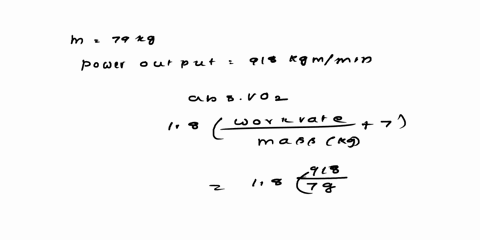 m = 79 kg
power output = 918 kgm/min
abs. VO2
1.8 ( workrate / mass (kg) + 7 )
= 1.8 ( 918 / 79